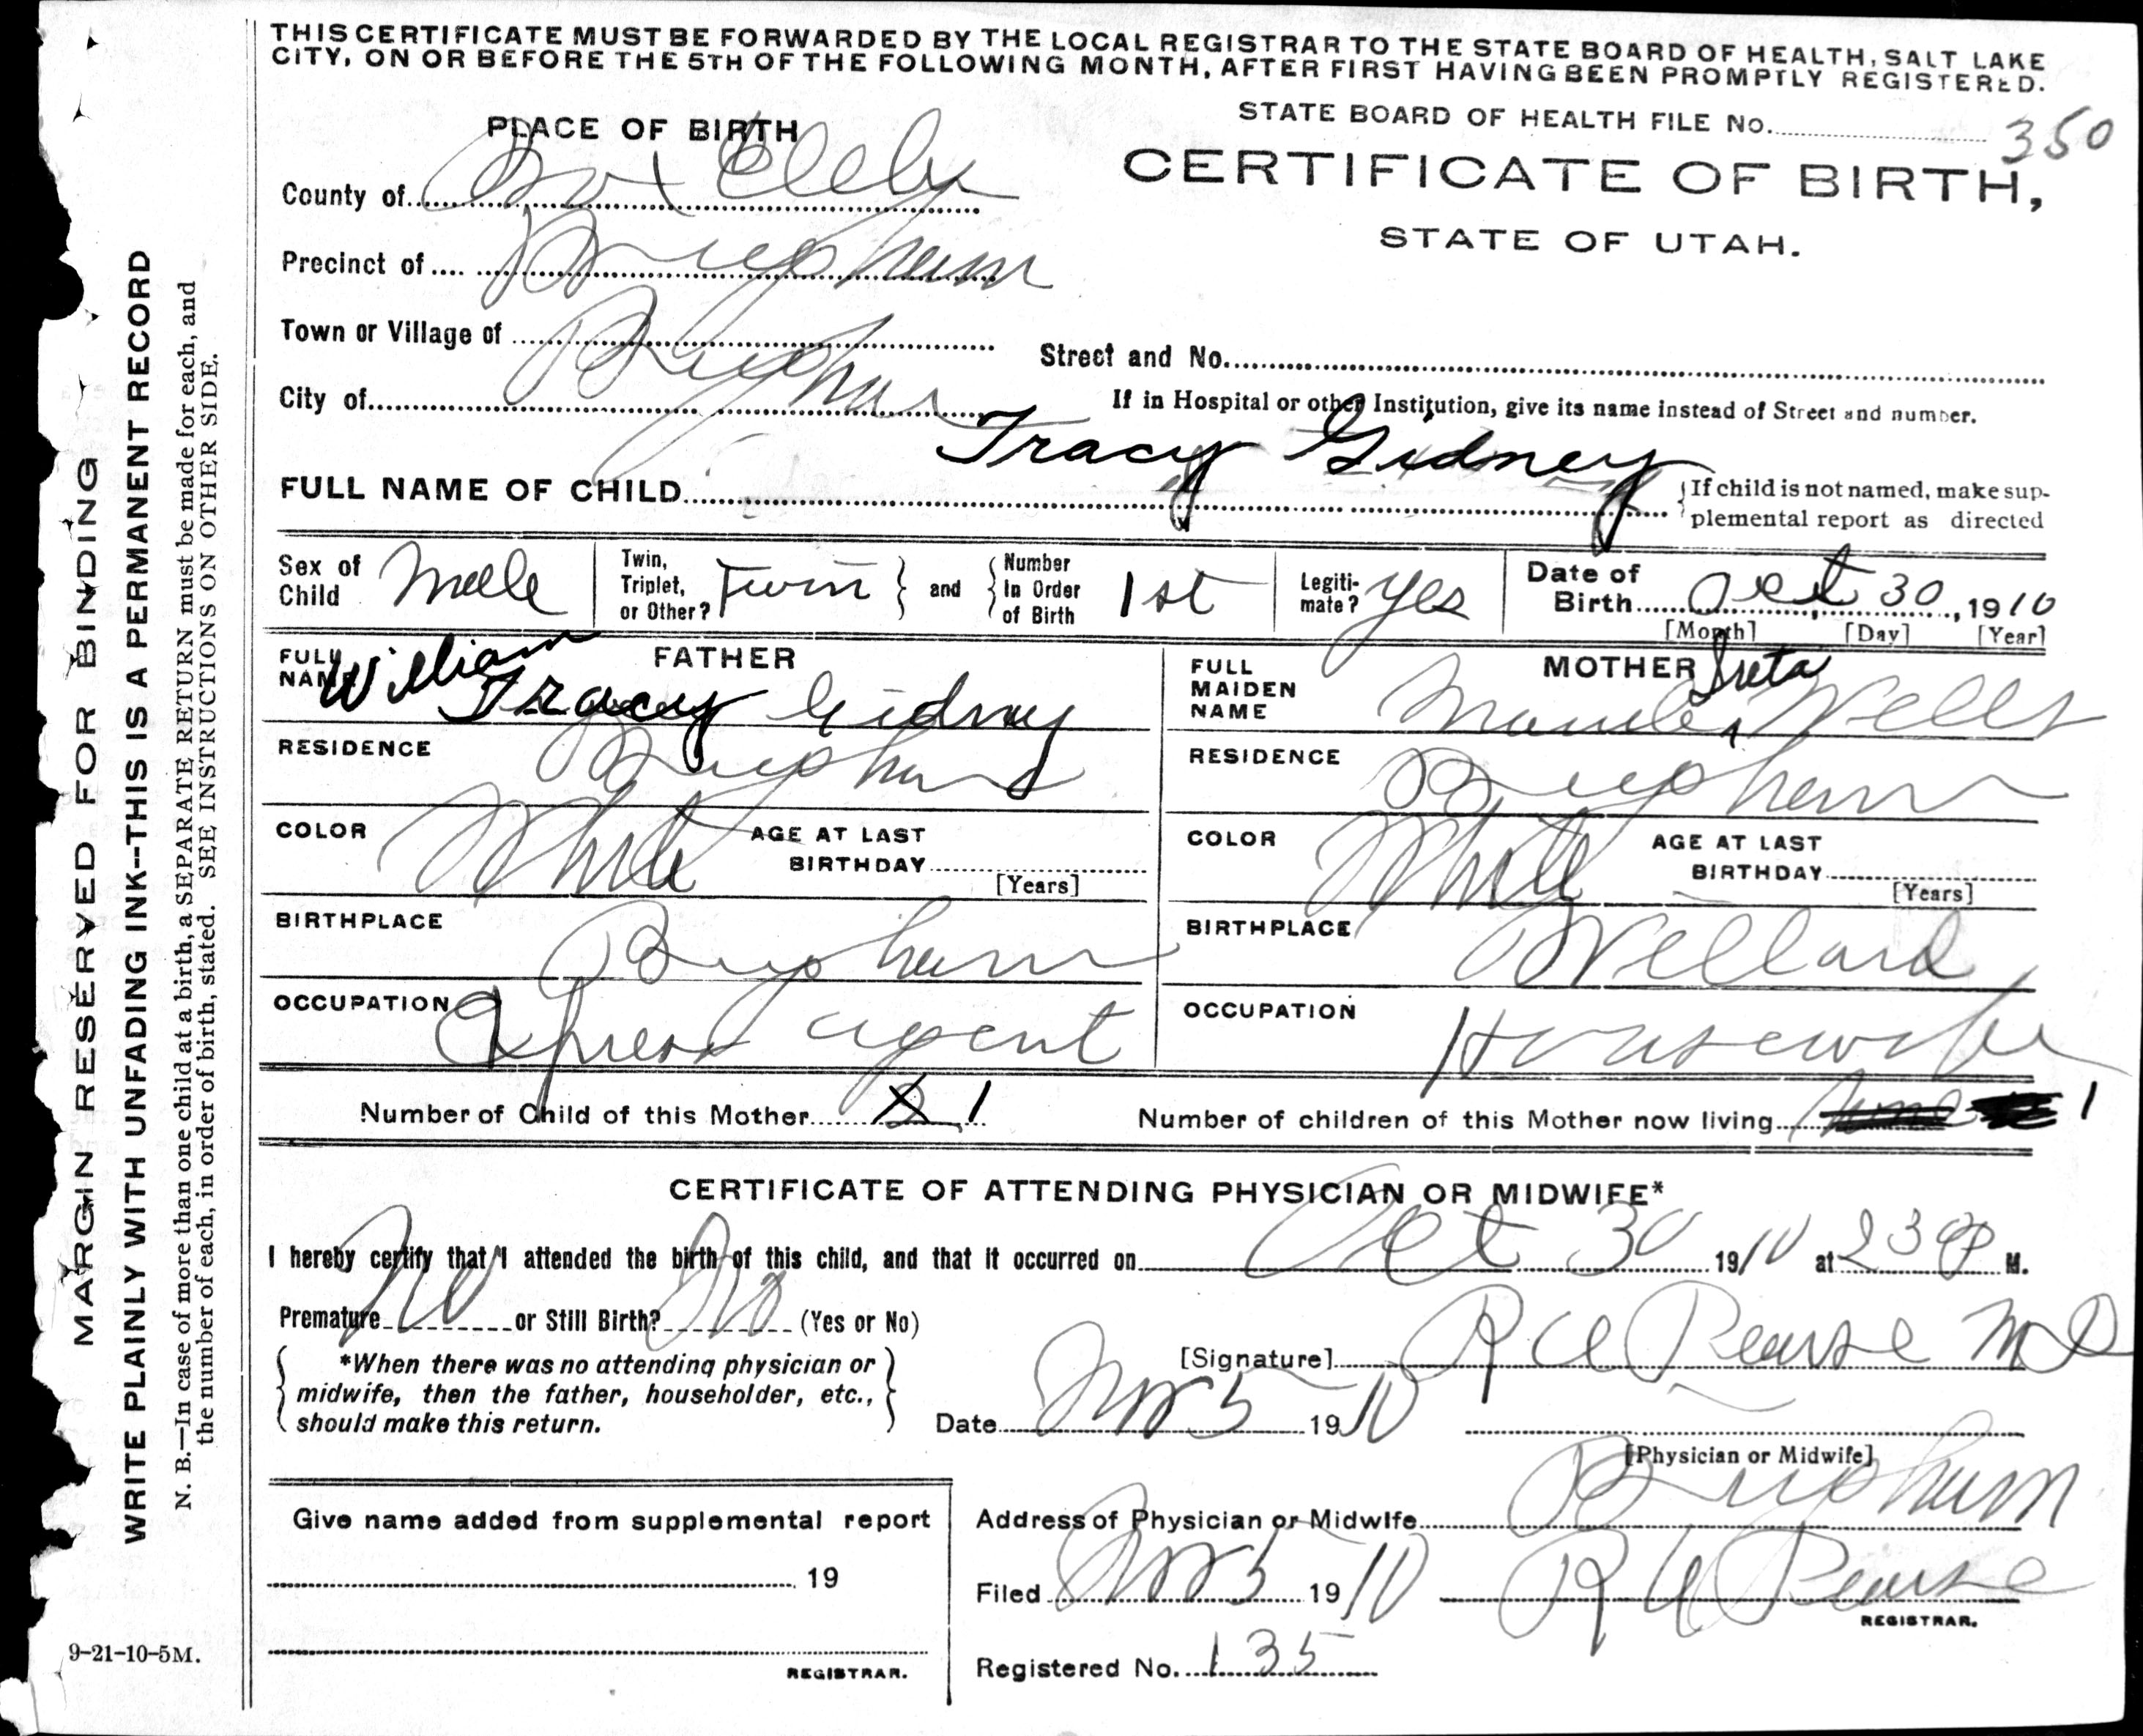 THIS CERTIFICATE MUST BE FORWARDED BY THE LOCAL REGISTRAR TO THE STATE BOARD OF HEALTH, SALT LAKE
CITY, ON OR BEFORE THE 5TH OF THE FOLLOWING MONTH, AFTER FIRST HAVING BEEN PROMPTLY REGISTERED.
STATE BOARD OF HEALTH FILE No. 350
PLACE OF BIRTH
CERTIFICATE OF BIRTH,
STATE OF UTAH.
County of Box Elder
Precinct of Brigham
Town or Village of
Street and No.
City of Brigham
If in Hospital or other Institution, give its name instead of Street and number.
FULL NAME OF CHILD Tracy Gidney
{If child is not named, make sup-
plemental report as directed
Sex of Child Male
Twin, Triplet, or Other? Twin } and { Number In Order of Birth 1st
Legiti-mate? Yes
Date of Birth Oct 30, 1910
[Month] [Day] [Year]
FATHER
FULL NAME William Tracy Gidney
RESIDENCE Brigham
COLOR White
AGE AT LAST BIRTHDAY [Years]
BIRTHPLACE Brigham
OCCUPATION Express agent
MOTHER
FULL MAIDEN NAME Maude Wells
RESIDENCE Brigham
COLOR White
AGE AT LAST BIRTHDAY [Years]
BIRTHPLACE Willard
OCCUPATION Housewife
Number of Child of this Mother 1
Number of children of this Mother now living 1
CERTIFICATE OF ATTENDING PHYSICIAN OR MIDWIFE*
I hereby certify that I attended the birth of this child, and that it occurred on Oct 30 1910 at 230 P M.
Premature No or Still Birth? No (Yes or No)
{ *When there was no attending physician or
midwife, then the father, householder, etc.,
should make this return. }
[Signature] R A Pearse MD
Date Nov 5 1910
[Physician or Midwife]
Address of Physician or Midwife Brigham
Filed Nov 5 1910 R A Pearse
REGISTRAR.
Registered No. 135
Give name added from supplemental report
19
REGISTRAR.
9-21-10-5M.
MARGIN RESERVED FOR BINDING
WRITE PLAINLY WITH UNFADING INK--THIS IS A PERMANENT RECORD
N. B.—In case of more than one child at a birth, a SEPARATE RETURN must be made for each, and
the number of each, in order of birth, stated. SEE INSTRUCTIONS ON OTHER SIDE.